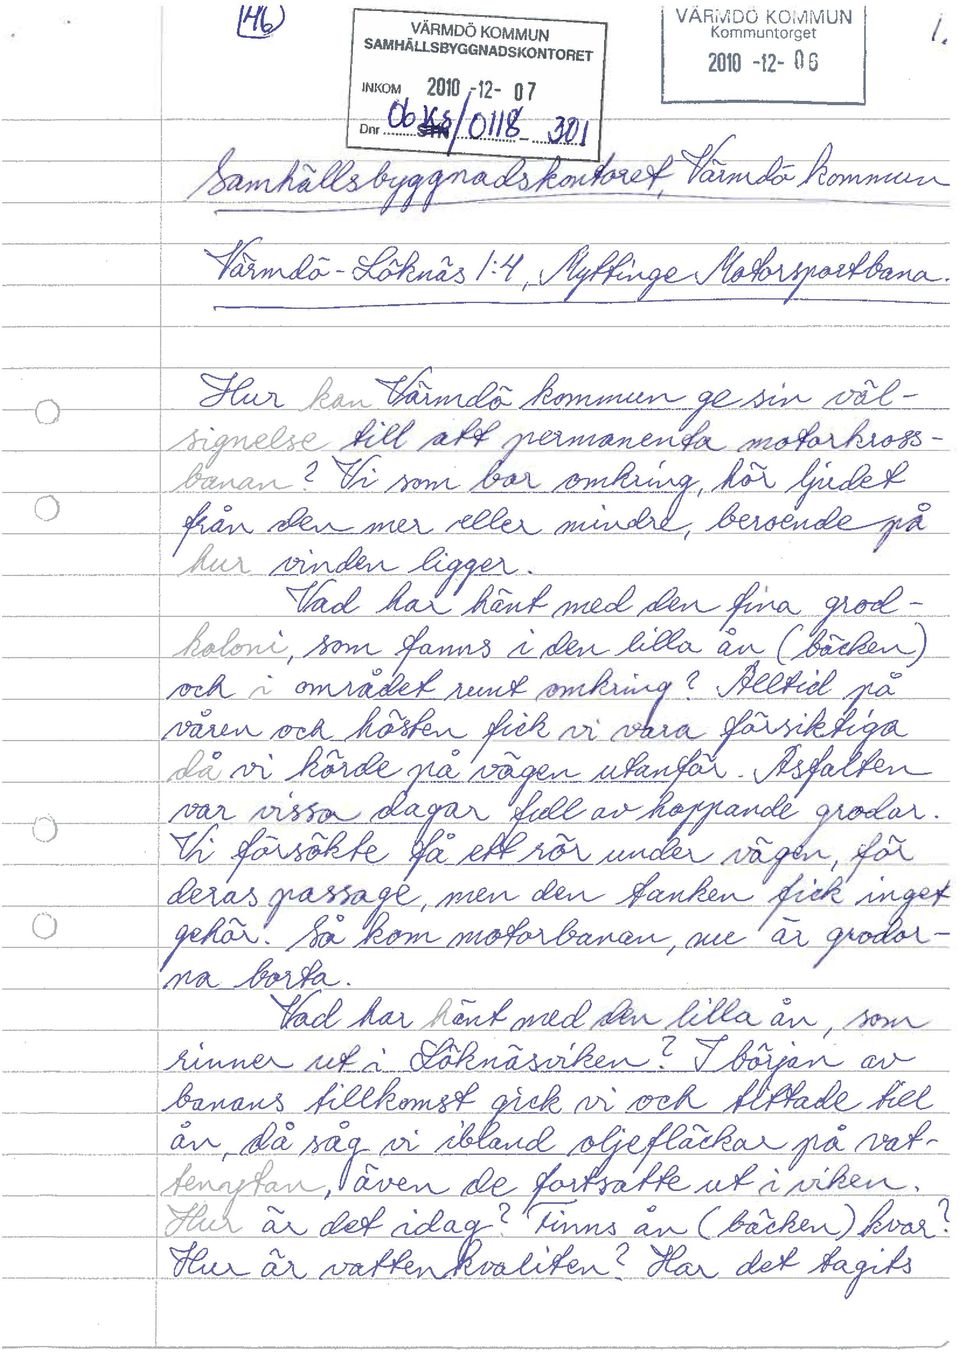 146
VÄRMDÖ KOMMUN
SAMHÄLLSBYGGNADSKONTORET
INKOM 2010 -12- 07
Dnr 06 KS/0118 301
VÄRMDÖ KOMMUN
Kommuntorget
2010 -12- 06
1.
Samhällsbyggnadskontoret, Värmdö kommun
Värmdö-Löknäs 1:4, Myttinge Motorsportbana.
Hur kan Värmdö kommun ge sin väl-
signelse till att permanenta motorkross-
banan? Vi som bor omkring, hör ljudet
från den mer eller mindre, beroende på
hur vinden ligger.
Vad har hänt med den fina grod-
koloni, som fanns i den lilla ån (bäcken)
och i området runt omkring? Alltid på
våren och hösten fick vi vara försiktiga
då vi körde på vägen utanför. Asfalten
var vissa dagar full av hoppande grodor.
Vi försökte få ett rör under vägen, för
deras passage, men den tanken fick inget
gehör. Så kom motorbanan, nu är grodor-
na borta.
Vad har hänt med den lilla ån, som
rinner ut i Löknäsviken? I början av
banans tillkomst gick vi och tittade till
ån, då såg vi ibland oljefläckar på vat-
tenytan, även de fortsatte ut i viken.
Hur är det idag? Finns ån (bäcken) kvar?
Hur är vattenkvaliten? Har det tagits